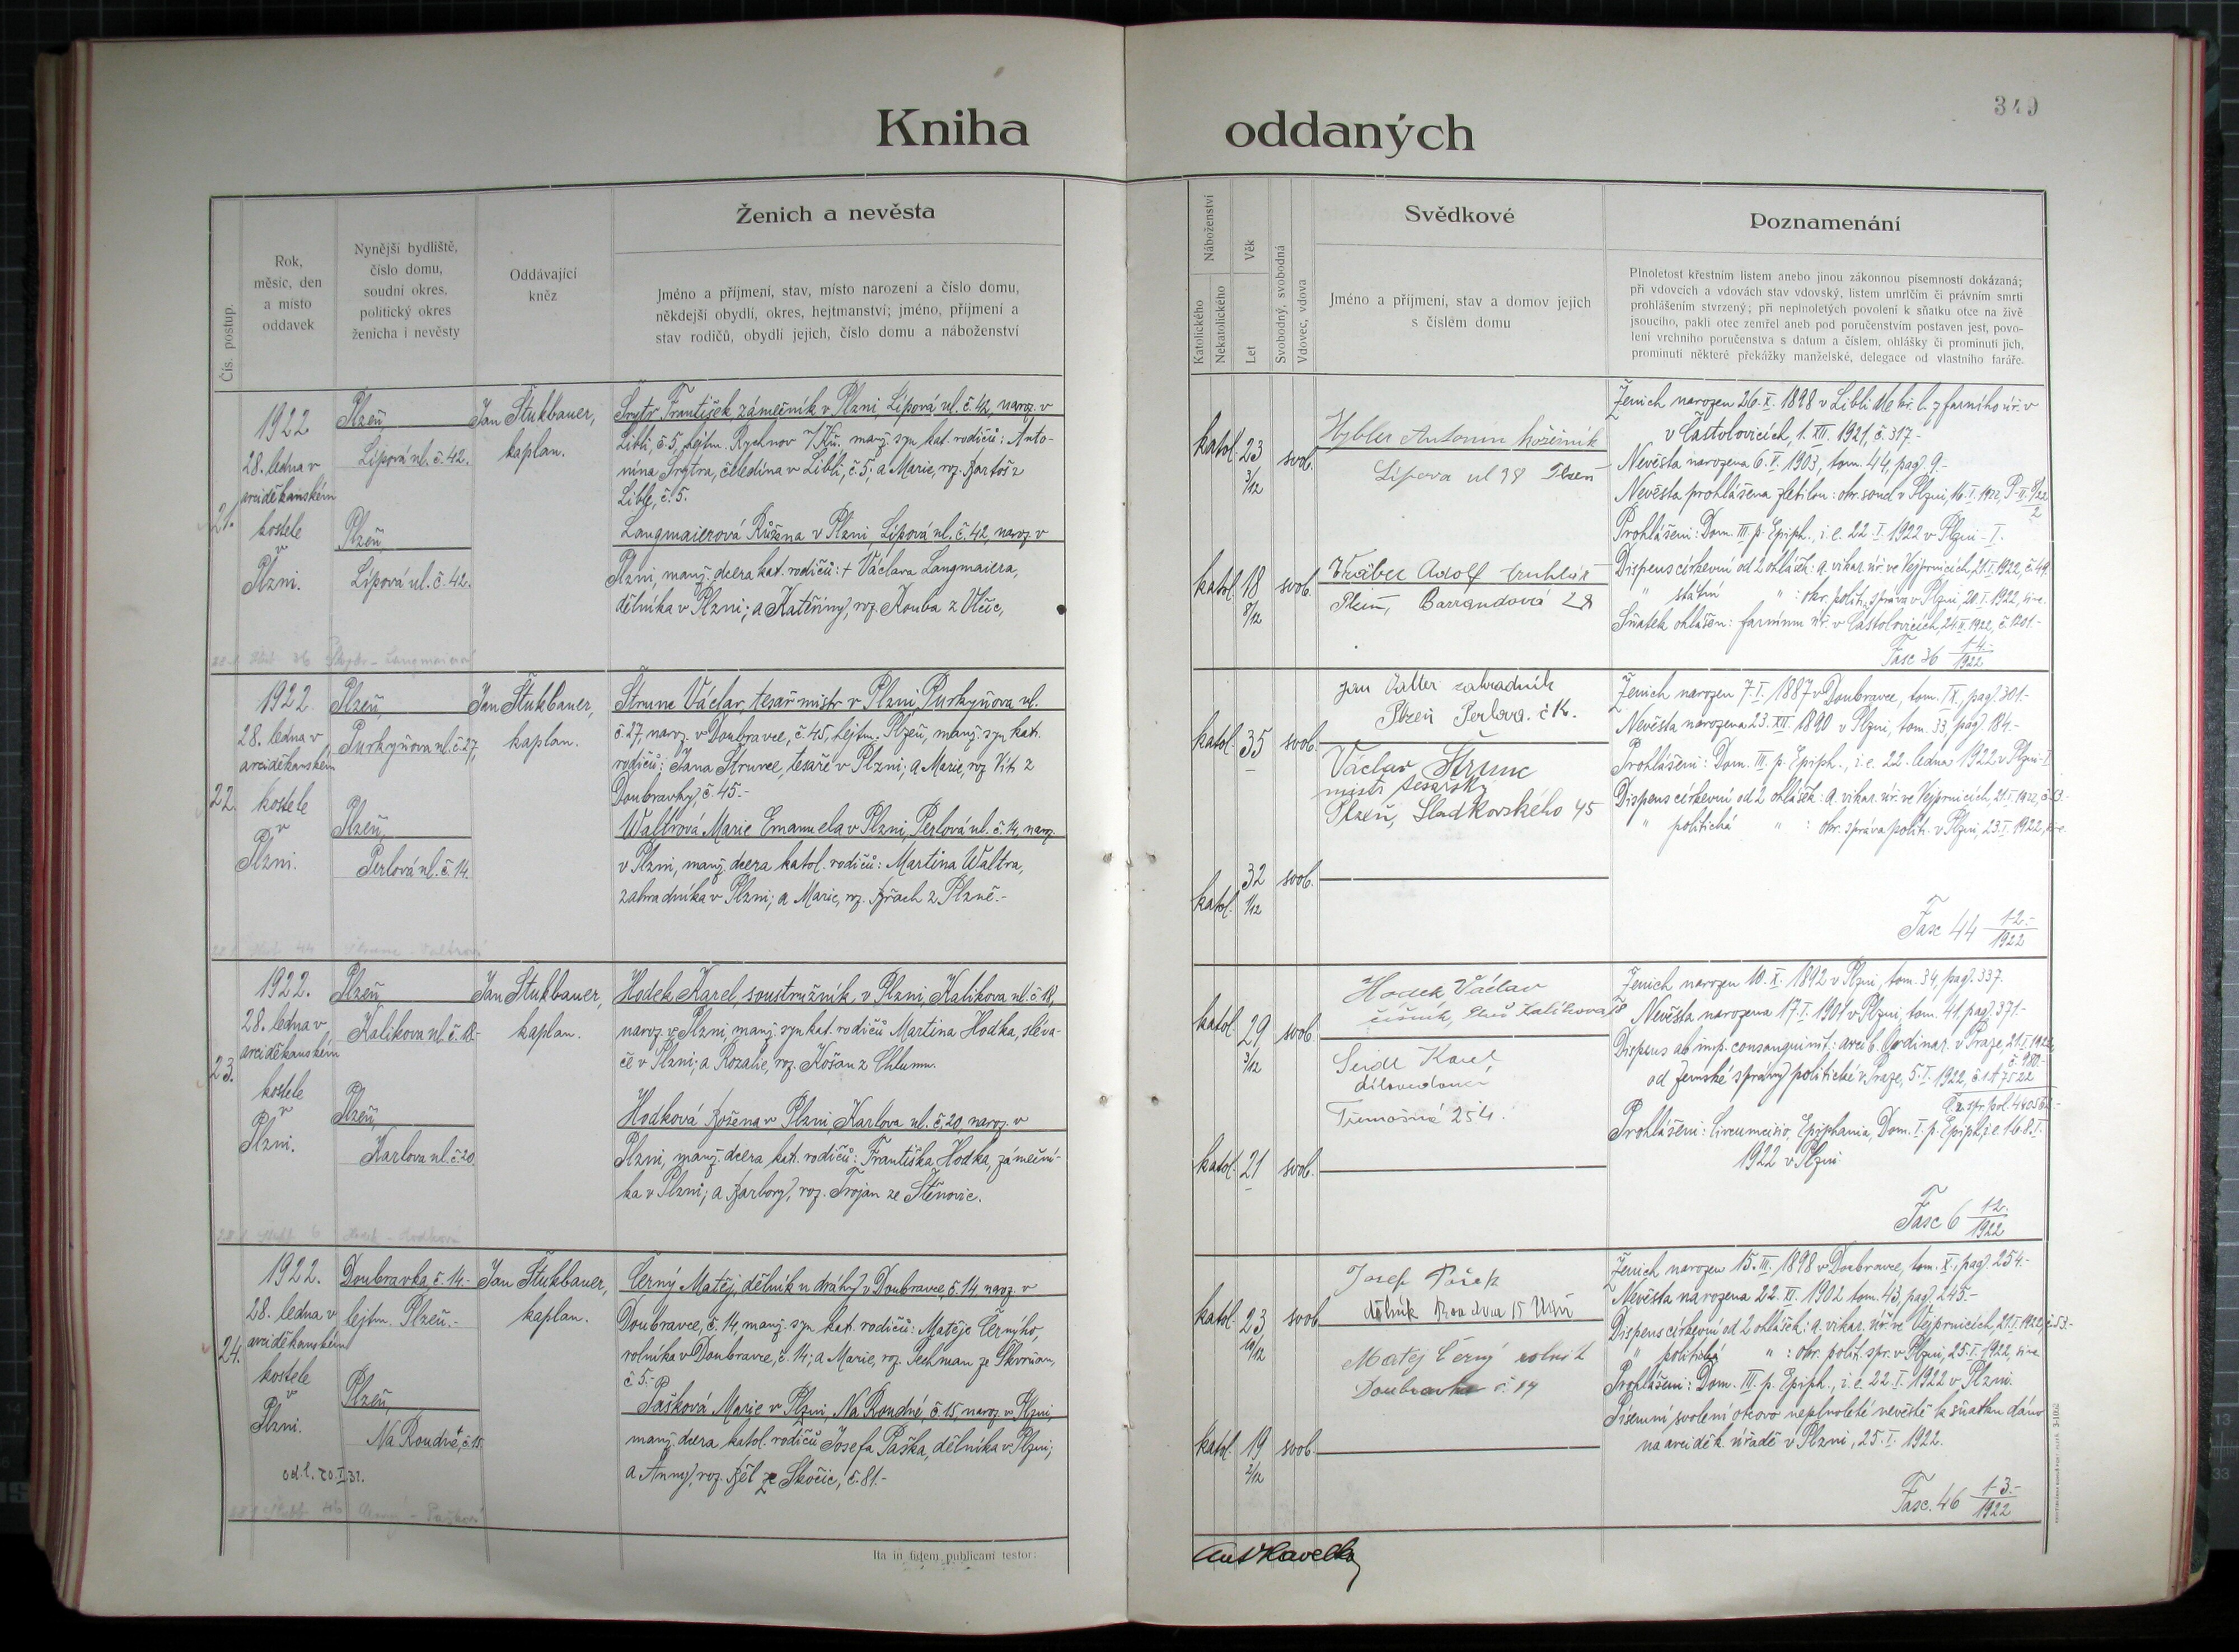 349
Kniha oddaných
Čís. postup.
Rok, měsíc, den a místo oddavek
Nynější bydliště, číslo domu, soudní okres, politický okres ženicha i nevěsty
Oddávající kněz
Ženich a nevěsta
Jméno a příjmení, stav, místo narození a číslo domu,
někdejší obydlí, okres, hejtmanství; jméno, příjmení a
stav rodičů, obydlí jejich, číslo domu a náboženství
Náboženství
Katolického
Nekatolického
Věk
Let
Svobodný, svobodná
Vdovec, vdova
Svědkové
Jméno a příjmení, stav a domov jejich
s číslem domu
Poznamenání
Plnoletost křestním listem anebo jinou zákonnou písemností dokázaná;
při vdovcích a vdovách stav vdovský, listem úmrlčím či právním smrti
prohlášením stvrzený; při neplnoletých povolení k sňatku otce na živě
jsoucího, pakli otec zemřel aneb pod poručenstvím postaven jest, povo-
lení vrchního poručenstva s datum a číslem, ohlášky či prominutí jich,
prominutí některé překážky manželské, delegace od vlastního faráře.
21.
1922
28. ledna v
arciděkanském
kostele
v
Plzni.
Plzeň,
Lípová ul. č. 42.
Plzeň,
Lípová ul. č. 42.
Jan Štukbauer,
kaplan.
František zámečník v Plzni, Lípová ul. č. 42, naroz. v
Libli, č. 5, hejtm. Rychnov n/Kn. manž. syn kat. rodičů: Anto-
nína čeledína v Libli, č. 5; a Marie, roz. Bartoš z
Lible, č. 5.
Langmaierová Růžena v Plzni, Lípová ul. č. 42, naroz. v
Plzni, manž. dcera kat. rodičů: † Václava Langmaiera,
dělníka v Plzni; a Kateřiny, roz. Kouba z
katol. 23 3/12 svob.
katol. 18 8/12 svob.
Hybler Antonín
Lípova ul 98 Plzeň
Adolf truhlář
Plzeň, Barrandová 28
Ženich narozen 26. X. 1898 v Libli dle kř. l. z farního úř. v
v Častolovicích, 1. XII. 1921, č. 317.-
Nevěsta narozena 6. V. 1903, tom. 44, pag. 9.-
Nevěsta prohlášena zletilou: okr. soud v Plzni, 16. I. 1922,
Prohlášeni: Dom. III. p. Epiph., i. e. 22. I. 1922 v Plzni - I.
Dispens církevní od 2 ohlášek: a. vikar. úř. ve Vejprnicích, 21. I. 1922, č. 49.
" státní " : okr. polit. správa v Plzni, 20. I. 1922,
Sňatek ohlášen: farnímu úř. v Častolovicích, 24. II. 1922, č. 1201.-
Fasc 36 1-4.-/1922
22.
1922
28. ledna v
arciděkanském
kostele
v
Plzni.
Plzeň,
Purkyňova ul. č. 27,
Plzeň,
Perlová ul. č. 14.
Jan Štukbauer,
kaplan.
Štrunc Václav, tesař. mistr v Plzni, Purkyňova ul.
č. 27, naroz. v Doubravce, č. 45, hejtm. Plzeň, manž. syn kat.
rodičů: Jana Štrunce, tesaře v Plzni; a Marie, roz. Vít z
Doubravky, č. 45.-
Waltrová Marie Emanuela v Plzni, Perlová ul. č. 14, naroz.
v Plzni, manž. dcera katol. rodičů: Martina Waltra,
zahradníka v Plzni; a Marie, roz. z Plzně.-
katol. 35 – svob.
katol. 32 1/12 svob.
Jan Valter zahradník
Plzeň Perlova. č 14.
Václav Štrunc
mistr tesařský
Plzeň, Sladkovského 45
Ženich narozen 7. I. 1887 v Doubravce, tom. IX, pag. 301.-
Nevěsta narozena 23. XII. 1890 v Plzni, tom. 33, pag. 184.-
Prohlášeni: Dom. III. p. Epiph., i. e. 22. ledna 1922 v Plzni - I
Dispens církevní od 2 ohlášek: a. vikar. úř. ve Vejprnicích, 21. I. 1922,
" politická " : okr. správa polit. v Plzni, 23. I. 1922,
Fasc 44 1-2.-/1922
23.
1922.
28. ledna v
arciděkanském
kostele
v
Plzni.
Plzeň,
Kalikova ul. č. 18.-
Plzeň,
Karlova ul. č. 20
Jan Štukbauer,
kaplan.
Hodek Karel, soustružník, v Plzni, Kalikova ul. č. 18,
naroz. v Plzni, manž. syn kat. rodičů Martina Hodka, sléva-
če v Plzni; a Rozalie, roz. Košan z Chlumu.
Hodková Božena v Plzni, Karlova ul. č. 20, naroz. v
Plzni, manž. dcera kat. rodičů: Františka Hodka, zámeční-
ka v Plzni; a Barbory, roz. Trojan ze Štěnovic.
katol. 29 3/12 svob.
katol. 21 – svob.
Hodek Václav
číšník, Plzeň Kalíkova 18
Seidl Karel
dílovedoucí
Třemošná 254.
Ženich narozen 10. X. 1892 v Plzni, tom. 34, pag. 337.
Nevěsta narozena 17. I. 1901 v Plzni, tom. 41, pag. 371.-
Dispens ab imp. consanguinit.: arcib. Ordinar. v Praze, 21. I. 1922,
č. 980.-
od zemské správy politické v Praze, 5. I. 1922,
Prohlášeni: Circumcisio, Epiphania, Dom. I. p. Epiph., i. e. 1. 6. 8. I.
1922 v Plzni.
Fasc 6 1-2./1922
24.
1922.
28. ledna v
arciděkanském
kostele
v
Plzni.
od. l. 20. I 31.
Doubravka, č. 14.-
hejtm. Plzeň.-
Plzeň,
Na Roudné, č. 15.
Jan Štukbauer,
kaplan.
Černý Matěj, dělník u dráhy v Doubravce, č. 14, naroz. v
Doubravce, č. 14, manž. syn kat. rodičů: Matěje Černýho,
rolníka v Doubravce, č. 14; a Marie, roz. Pechman ze Skvrňan,
č. 5.-
Pašková Marie v Plzni, Na Roudné, č. 15, naroz. v Plzni,
manž. dcera katol. rodičů Josefa Paška, dělníka v Plzni;
a Anny, roz. ze Skočic, č. 81.-
katol. 23 10/12 svob.
katol. 19 2/12 svob.
Josef Pašek
dělník Roudná 15
Matěj Černý rolník
Doubravka č. 14
Ženich narozen 15. III. 1898 v Doubravce, tom. X., pag. 254.-
Nevěsta narozena 22. XI. 1902 tom. 43, pag. 245.-
Dispens církevní od 2 ohlášek: a. vikar. úř. ve Vejprnicích, 21. I. 1922, č. 53.-
" politická " : okr. polit. spr. v Plzni, 25. I. 1922,
Prohlášeni: Dom. III. p. Epiph., i. e. 22. I. 1922 v Plzni.
Písemní svolení otcovo neplnoleté nevěstě k sňatku dáno
na arciděk. úřadě v Plzni, 25. I. 1922.
Fasc. 46 1-3.-/1922
Ita in fidem publicam testor:
Ant Havelka